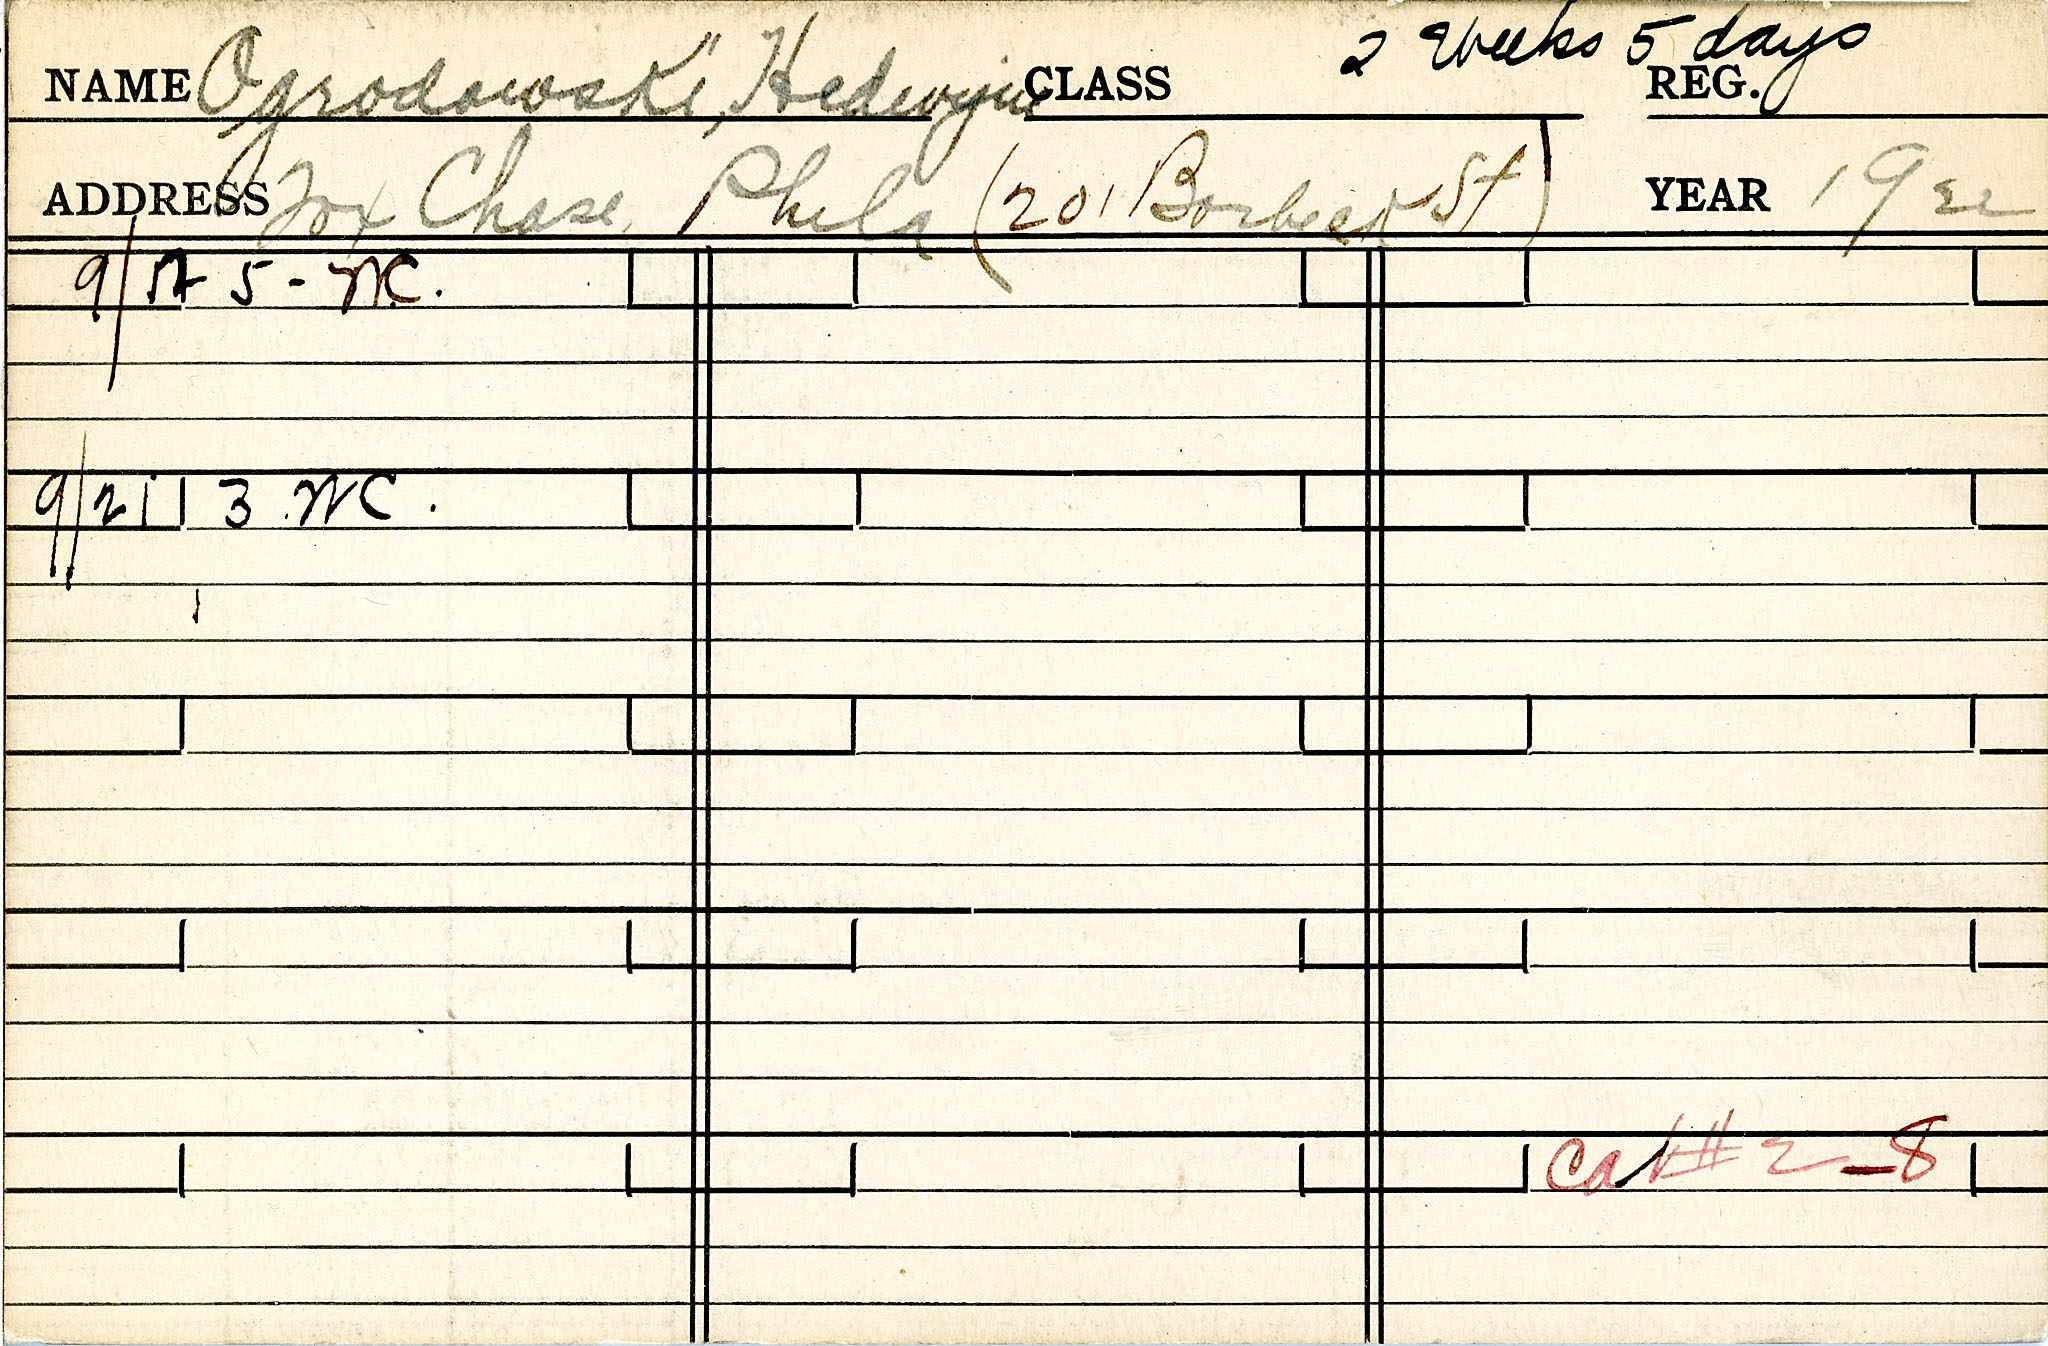 2 Weeks 5 days
NAME Ogrodowski, Hedwig CLASS REG.
ADDRESS Fox Chase, Phila (201 Borbeck St) YEAR 1922
9/12 5 - NC.
9/21 3 NC.
Cat # 2-8